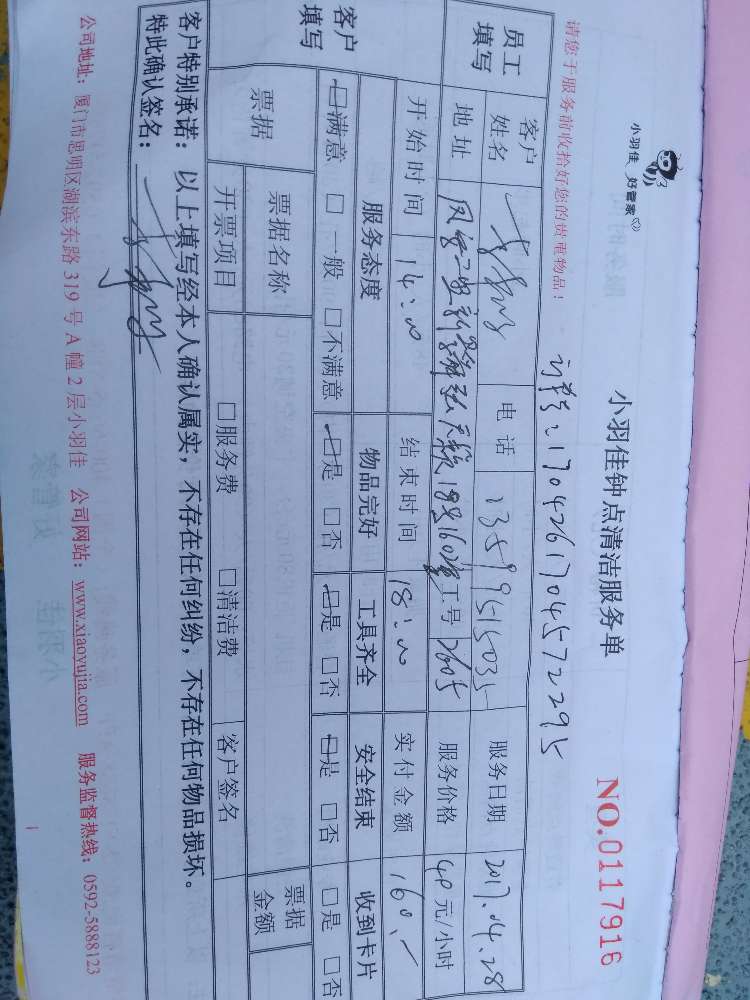 小羽佳 好管家
小羽佳钟点清洁服务单
NO.0117916
请您于服务前收拾好您的贵重物品!
订单:1704261704572295
员工填写 客户姓名 电话 13599515035 服务日期 2017.04.28
地址 18号1602室 工号 2605 服务价格 40元/小时
开始时间 14:00 结束时间 18:00 实付金额 160.-
客户填写 服务态度 物品完好 工具齐全 安全结束 收到卡片
☑满意 □一般 □不满意 ☑是 □否 ☑是 □否 ☑是 □否 □是 □否
票据 票据名称 票据金额
开票项目 □服务费 □清洁费 客户签名
客户特别承诺: 以上填写经本人确认属实,不存在任何纠纷,不存在任何物品损坏。
特此确认签名:
公司地址:厦门市思明区湖滨东路 319 号 A 幢 2 层小羽佳 公司网站:www.xiaoyujia.com 服务监督热线:0592-5888123